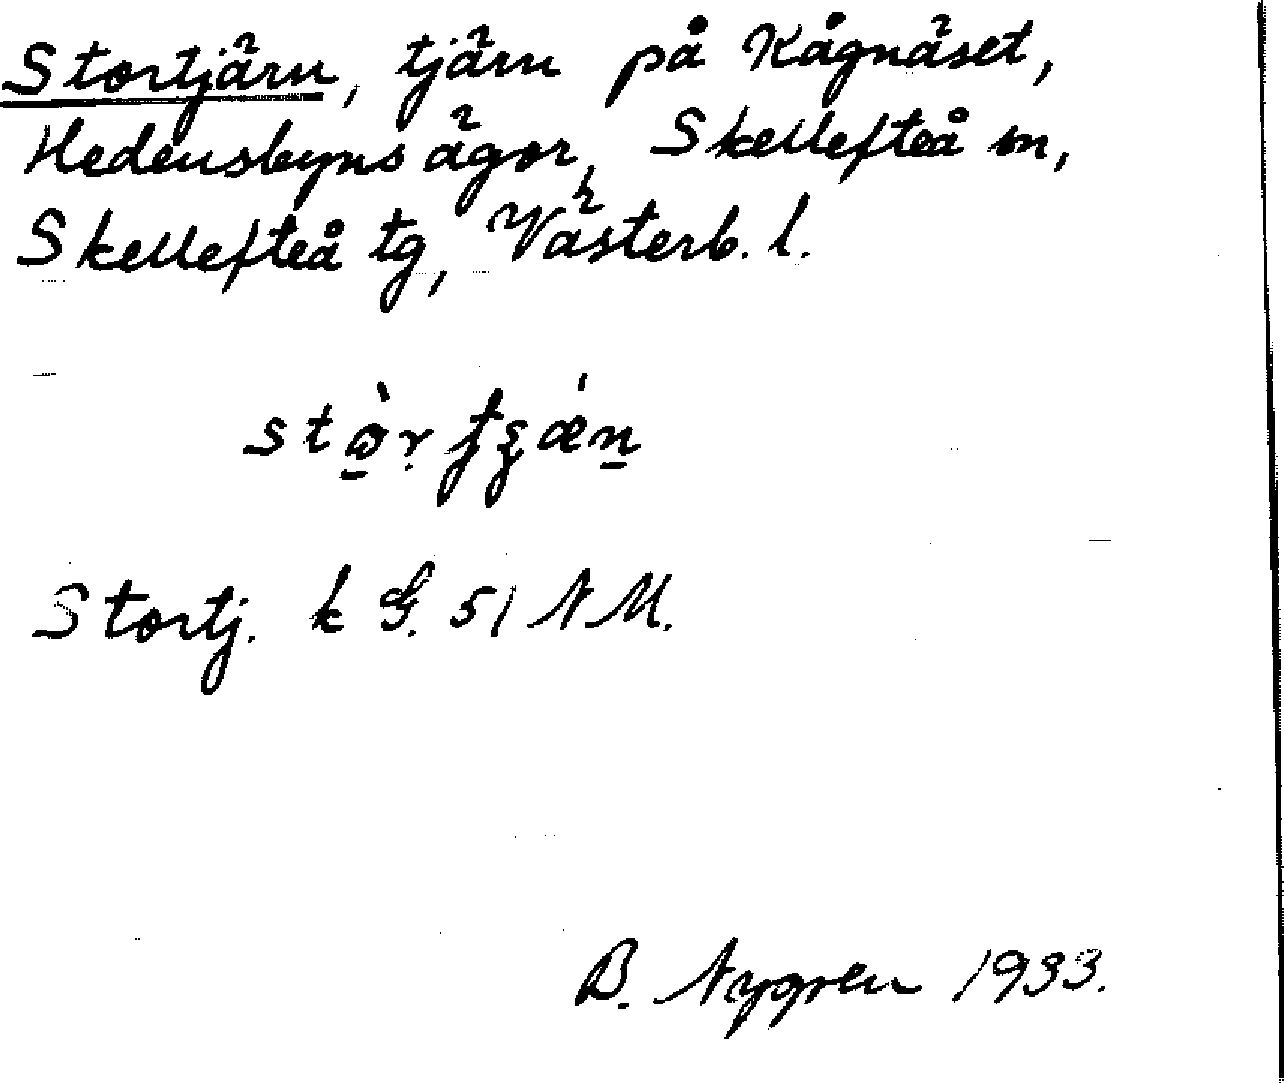 Stortjärn, tjärn på Kågnäset,
Hedensbyns ägor, Skellefteå sn,
Skellefteå tg, Västerb. l.
Stortj. k G. 51 NM.
B. Nygren 1933.